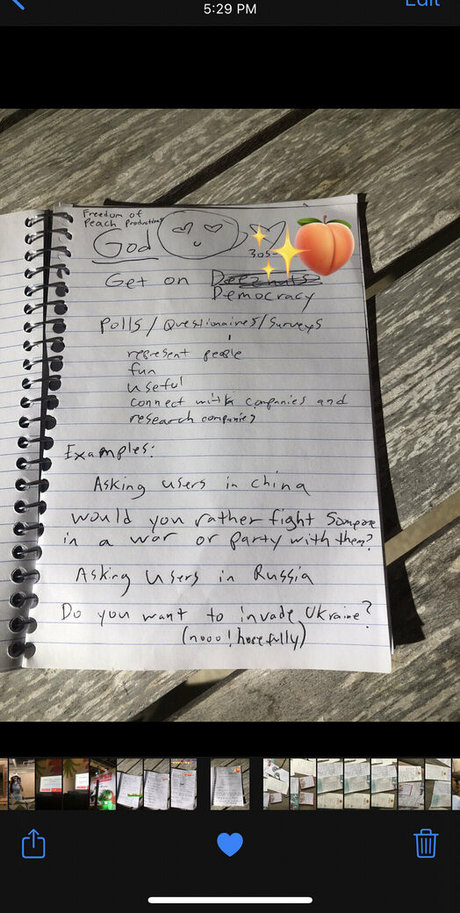 5:29 PM
Edit
Freedom of
Peach Productions
God
Get on Deez nuts
Democracy
Polls / Questionaires / Surveys
represent people
fun
useful
connect with companies and
research companies
Examples:
Asking users in china
would you rather fight Someone
in a war or party with them?
Asking users in Russia
Do you want to invade Ukraine?
(nooo! hopefully)